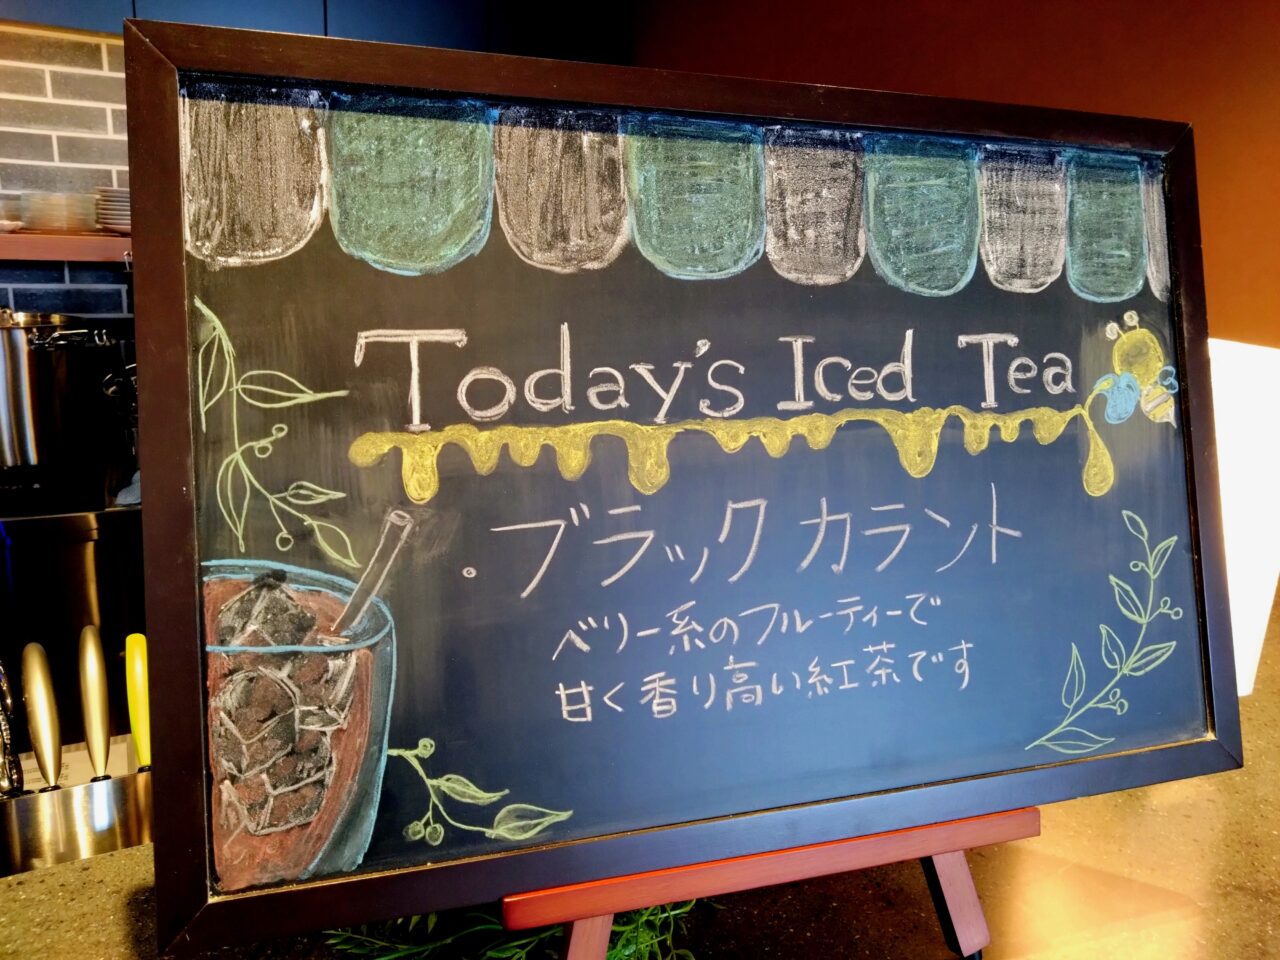 Today's Iced Tea
・ブラックカラント
ベリー系のフルーティーで
甘く香り高い紅茶です